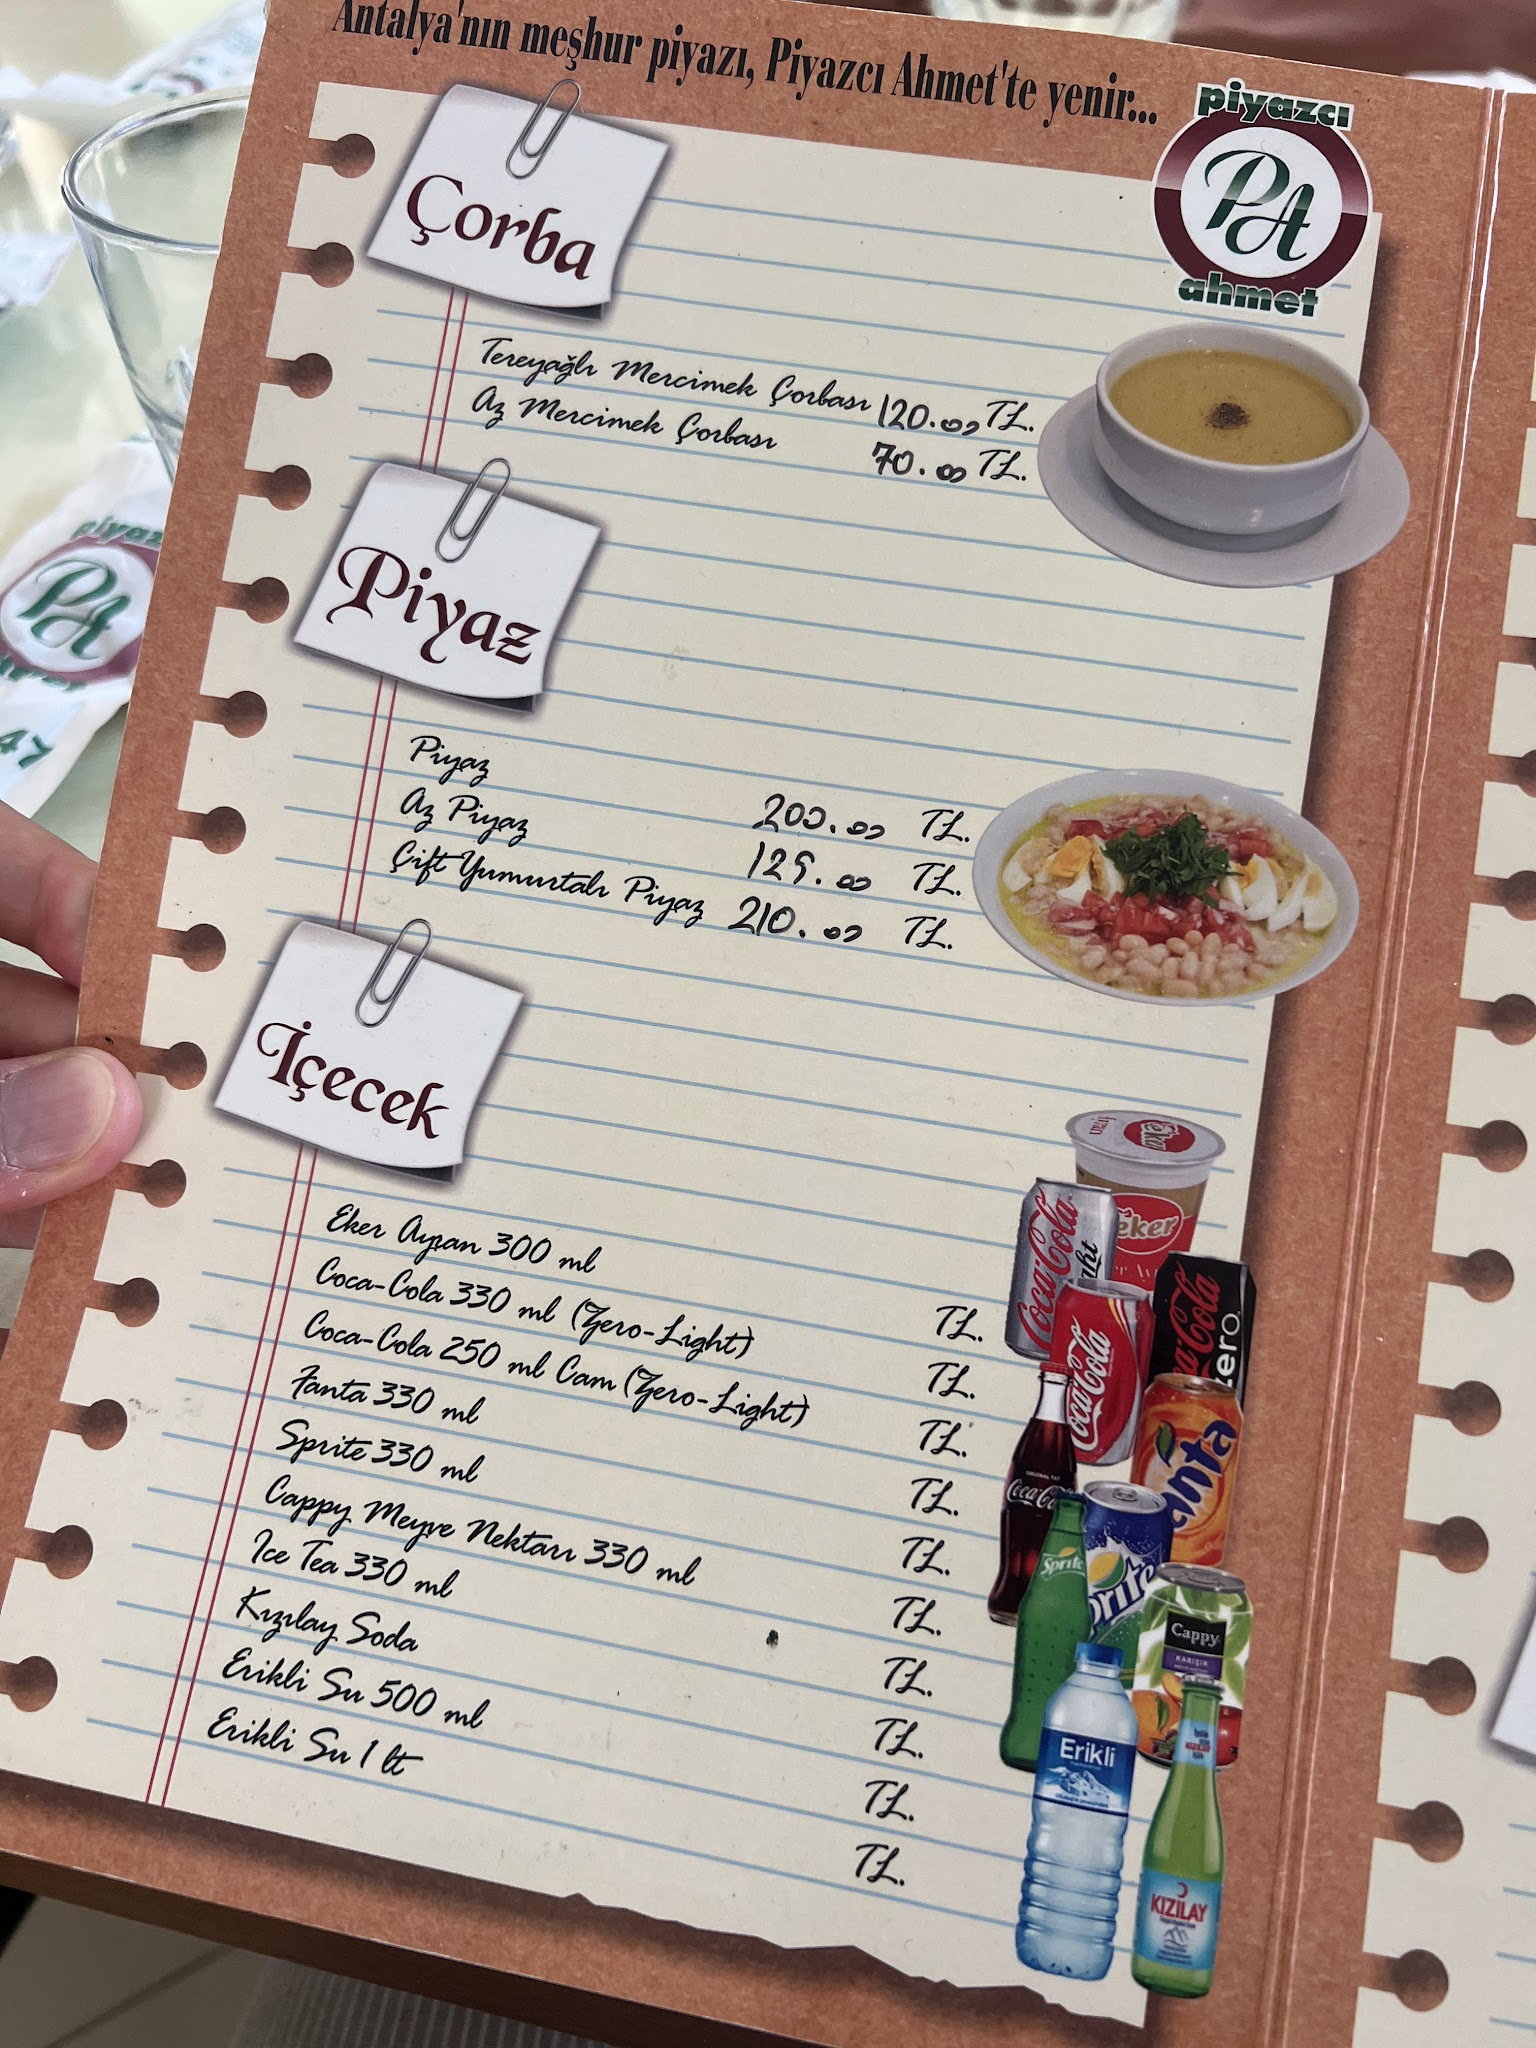 Antalya'nın meşhur piyazı, Piyazcı Ahmet'te yenir...
piyazcı
PA
ahmet
Çorba
Tereyağlı Mercimek Çorbası 120.00 TL.
Az Mercimek Çorbası 70.00 TL.
Piyaz
Piyaz 200.00 TL.
Az Piyaz 125.00 TL.
Çift Yumurtalı Piyaz 210.00 TL.
İçecek
Eker Ayran 300 ml TL.
Coca-Cola 330 ml (Zero-Light) TL.
Coca-Cola 250 ml Cam (Zero-Light) TL.
Fanta 330 ml TL.
Sprite 330 ml TL.
Cappy Meyve Nektarı 330 ml TL.
Ice Tea 330 ml TL.
Kızılay Soda TL.
Erikli Su 500 ml TL.
Erikli Su 1 lt TL.
eker
Coca-Cola
Coca-Cola
Coca-Cola
Fanta
Sprite
Cappy
KARIŞIK
Erikli
KIZILAY
PA
47